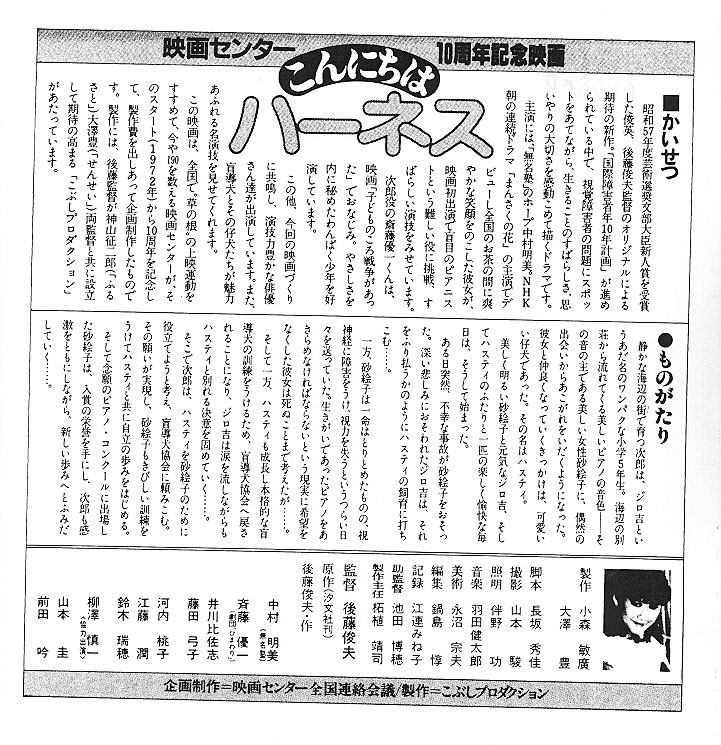 映画センター 10周年記念映画
こんにちは
ハーネス
■かいせつ
昭和57年度芸術選奨文部大臣新人賞を受賞
した俊英、後藤俊夫監督のオリジナルによる
期待の新作。「国際障害者年10年計画」が進め
られている中で、視覚障害者の問題にスポッ
トをあてながら、生きることのすばらしさ、思
いやりの大切さを感動こめて描くドラマです。
主演には、「無名塾」のホープ中村明美。NHK
朝の連続ドラマ「まんさくの花」の主演でデ
ビューし全国のお茶の間に爽
やかな笑顔をのこした彼女が、
映画初出演で盲目のピアニス
トという難しい役に挑戦、す
ばらしい演技をみせています。
次郎役の斎藤優一くんは、
映画「子どものころ戦争があっ
た」でおなじみ。やさしさを
内に秘めたわんぱく少年を好
演しています。
この他、今回の映画づくり
に共鳴し、演技力豊かな俳優
さん達が出演しています。また、
盲導犬とその仔犬たちが魅力
あふれる名演技を見せてくれます。
この映画は、全国で“草の根”の上映運動を
すすめて、今や190を数える映画センターが、そ
のスタート(1972年)から10周年を記念し
て、製作費を出しあって企画制作したもので
す。製作には、後藤監督が神山征二郎(「ふる
さと」)大澤豊(「せんせい」)両監督と共に設立
して期待の高まる「こぶしプロダクション」
があたっています。
●ものがたり
静かな海辺の街で育つ次郎は、ジロ吉とい
うあだ名のワンパクな小学5年生。海辺の別
荘から流れてくる美しいピアノの音色——そ
の音の主である美しい女性砂絵子に、偶然の
出会いからあこがれをいだくようになった。
彼女と仲良くなっていくきっかけは、可愛い
い仔犬であった。その名はハスティ。
美しく明るい砂絵子と元気なジロ吉、そし
てハスティのふたりと一匹の楽しく愉快な毎
日は、そうして始まった。
ある日突然、不幸な事故が砂絵子をおそっ
た。深い悲しみにおそわれたジロ吉は、それ
をふり払うかのようにハスティの飼育に打ち
こむ……。
一方、砂絵子は一命はとりとめたものの、視
神経に障害をうけ、視力を失うというつらい日
々を送っていた。生きがいであったピアノをあ
きらめなければならないという現実に希望を
なくした彼女は死ぬことまで考えたが……。
そして一方、ハスティも成長し本格的な盲
導犬の訓練をうけるため、盲導犬協会へ戻さ
れることになり、ジロ吉は涙を流しながらも
ハスティと別れる決意を固めていく……。
そこで次郎は、ハスティを砂絵子のために
役立てようと考え、盲導犬協会に頼みこむ。
その願いが実現し、砂絵子もきびしい訓練を
うけてハスティと共に自立の歩みをはじめる。
そして念願のピアノ・コンクールに出場し
た砂絵子は、入賞の栄誉を手にし、次郎も感
激をともにしながら、新しい歩みへとふみだ
していく……。
製作 小森 敏廣
大澤 豊
脚本 長坂 秀佳
撮影 山本 駿
照明 伴野 功
音楽 羽田健太郎
美術 永沼 宗夫
編集 鍋島 惇
記録 江連みね子
助監督 池田 博穂
製作主任 柘植 靖司
監督 後藤俊夫
原作(汐文社刊)
後藤俊夫・作
中村 明美(無名塾)
斉藤 優一(劇団ひまわり)
井川比佐志
藤田 弓子
河内 桃子
江藤 潤
鈴木 瑞穂
柳澤 慎一(協力出演)
山本 圭
前田 吟
企画制作=映画センター全国連絡会議/製作=こぶしプロダクション